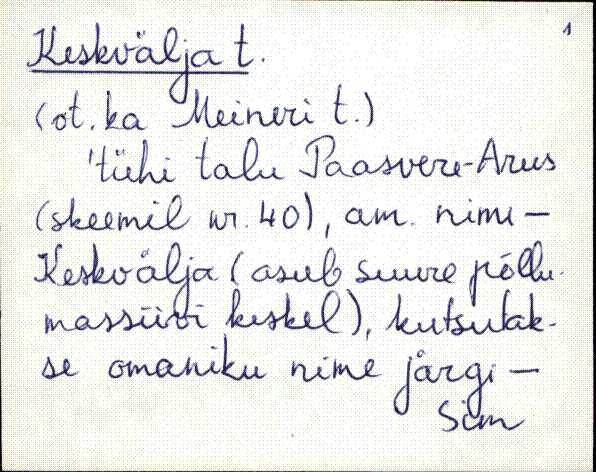 1
Keskvälja t.
(öt. ka Meineri t.)
'tühi talu Paasvere-Arus
(skeemil nr. 40), am. nimi –
Keskvälja (asub suure põllu-
massiivi keskel), kutsutak-
se omaniku nime järgi –
Sim